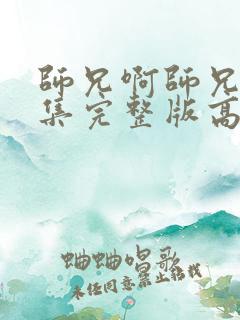 師兄啊師兄
集完整版高
蛐蛐唱歌
未经同意禁止转载